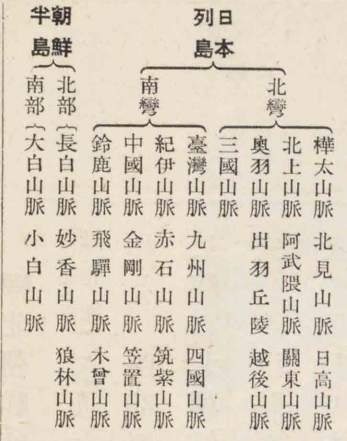 日本列島
北彎
樺太山脈 北見山脈 日高山脈
北上山脈 阿武隈山脈 關東山脈
奧羽山脈 出羽丘陵 越後山脈
三國山脈
南彎
臺灣山脈 九州山脈 四國山脈
紀伊山脈 赤石山脈 筑紫山脈
中國山脈 金剛山脈 笠置山脈
鈴鹿山脈 飛驒山脈 木曾山脈
朝鮮半島
北部 長白山脈 妙香山脈 狼林山脈
南部 大白山脈 小白山脈